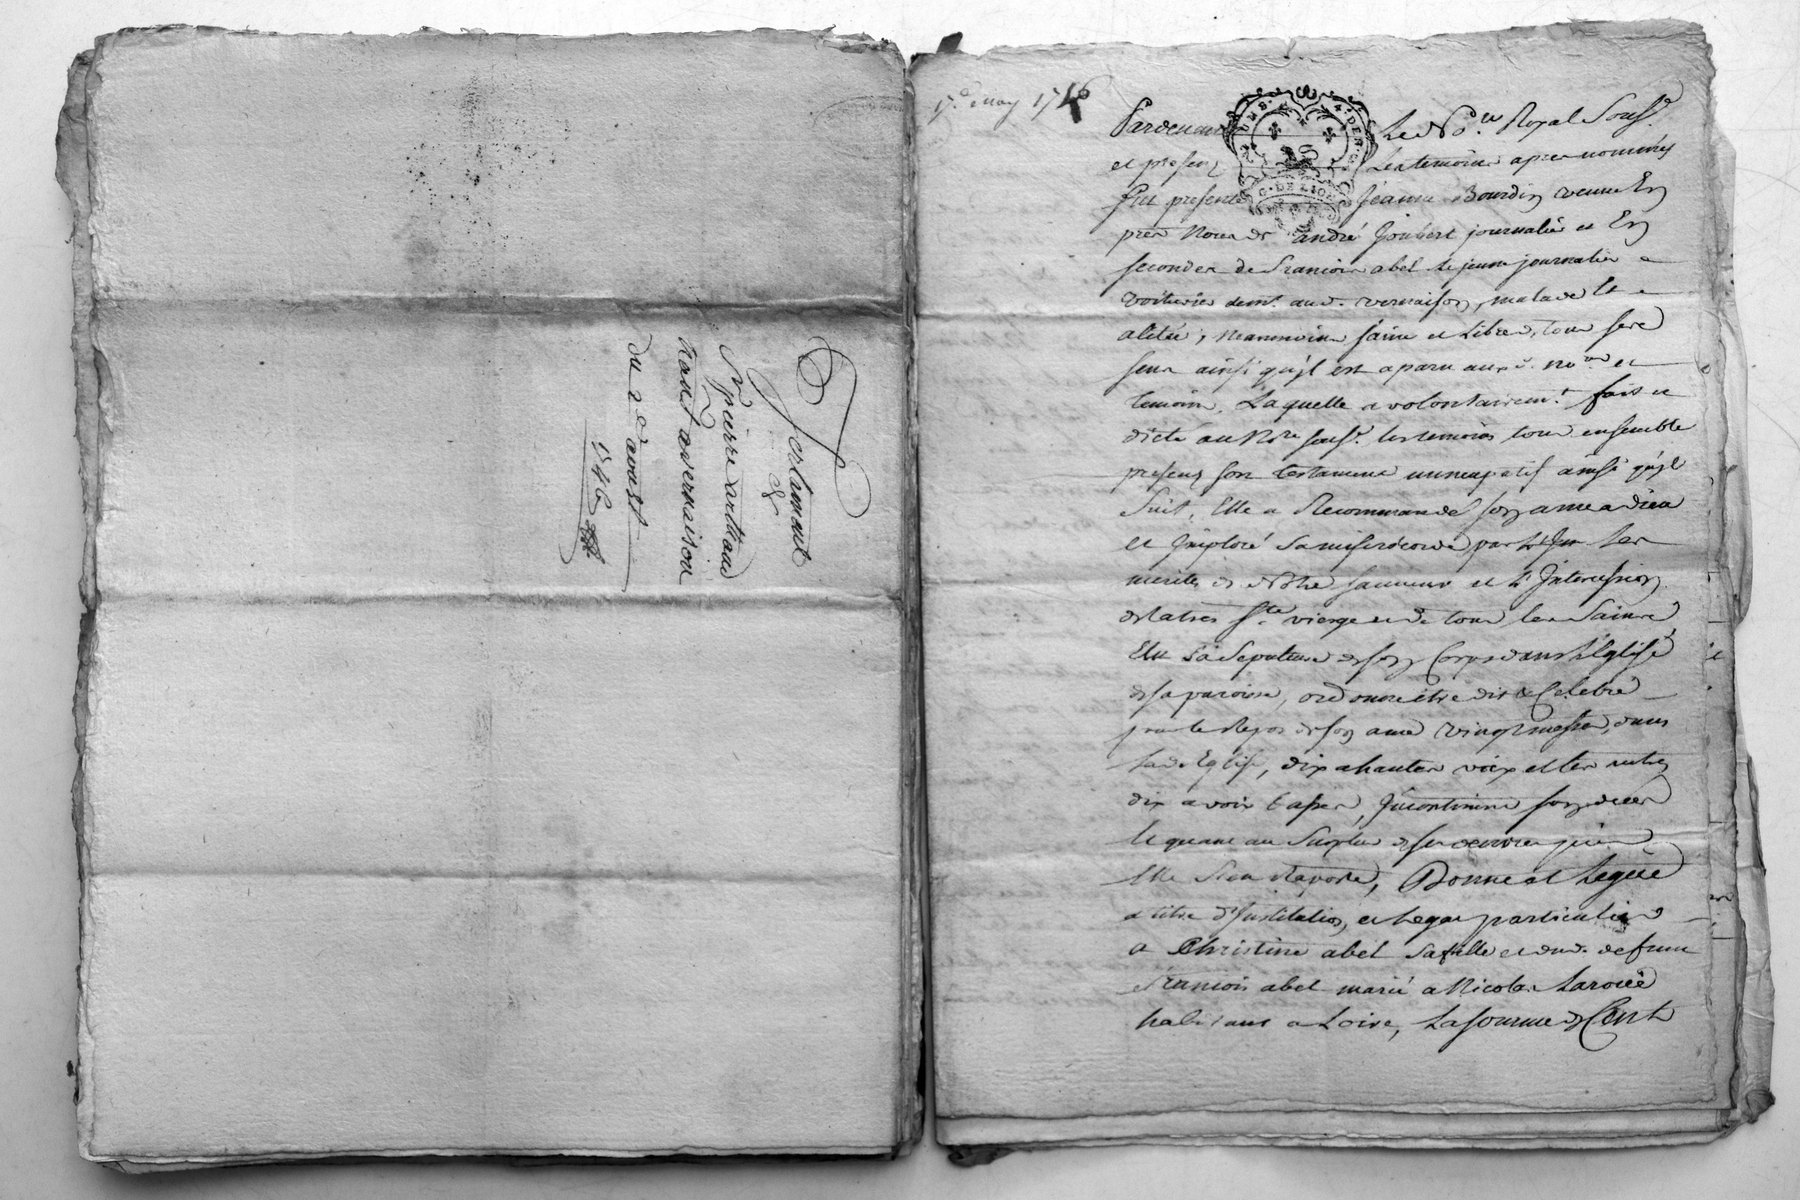 Testament
de
Sr pierre arthaud
habt a vernaison
du 2e aoust
1746
17e may 1746
Pardevant Le No.re Royal Sousse
et presens Les temoins apres nommés
fut presente Jeanne Bourdin veuve En
pres noces de andré Joubert journalier et En
secondes de francois abel le jeune journalier e
voiturier demt aud. vernaison, malade et
alitée, neanmoins saine et Libre de tous ses
sens ainsi qu'jl est aparu auxd. nore et
temoins, Laquelle a volontairemt fait et
dicté au Nore soussé les temoins tous ensemble
presens son testament nuncupatif ainsi qu'jl
suit, Elle a Recommandé son ame a dieu
et Jmploré sa misericorde par les
merites de Notre sauveur et L'Jntercession
de la tres Ste vierge et de tous les Saints,
Elu sa sepulture de son Corps dans L'Eglise
de sa paroisse, ordonne etre dit & Celebré
pour le Repos de son ame vingt messes, dans
lad. Eglise, dix a hautes voix et les autres
dix a voix basses, Jncontinent son deces
et quant au surplus de ses oeuvres pies
Elle s'en Raporte, Donne et Legue
a titre d'Jnstitution, et Legat particulier
a Christine abel sa fille et dud. defunt
francois abel marié a Nicolas Laroue
habitant a Loire, La somme de Cent